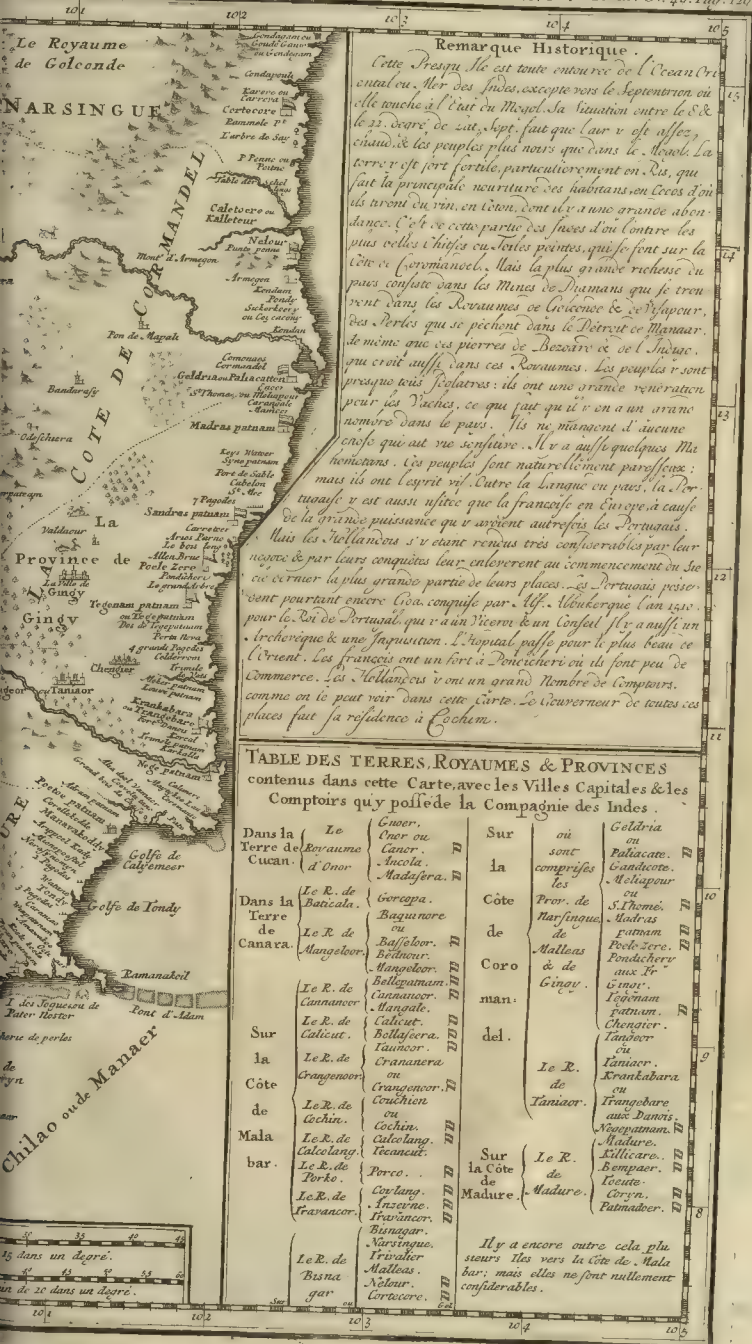 101
102
103
104
105
Le Royaume
de Golconde
NARSINGUE
COTE DE CORMANDEL
Gondagam ou
Condapouli
Karero ou
Carrera
Cortocore
Rammele Pt
L'arbre de Say
P Penne ou
Caletoere ou
Kalleteur
Nelour
Punte penne
Mont d'Armegon
Armegon
Kendum
Pondy
Kendan
Pon de Mapali
Comonaes
Cormandel
Geldria ou Paliacatten
St Thome, ou Meliapour
Carangale
Madras patnam
Bandarasy
Odeschiera
Keys Watver
Syno patnam
Port de Sable
Cabelon
7 Pagodes
Sandras patnam
Valdaour
La
Province de
Gingy
La Ville de
Gingy
Carreteer
Aries Parne
Le bois long
Allen Bruc
Poele Zero
Pondichery
Le grand Arbre
Tegenam patnam
ou Tegepatnam
Porta Nova
4 grands Pagodes
Colderron
Chengier
Taniaor
Krankabara
ou Trangebare
Karkalla
Nege patnam
Golfe de
Calyemeer
Golfe de Tondy
Ramanakoil
Pont d'Adam
Pater Noster
Chilao ou de Manaer
Remarque Historique.
Cette Presqu'Ile est toute entourée de l'Ocean Ori
ental ou Mer des Indes, excepté vers le Septentrion où
elle touche à l'Etat du Mogol. Sa Situation entre le 8 &
le 22. degré de Lat. Sept. fait que l'air y est assez
chaud, & les peuples plus noirs que dans le Mogol. La
terre y est fort fertile, particulierement en Ris, qui
fait la principale nouriture des habitans, en Cocos d'où
ils tirent du vin, en Coton, dont il y a une grande abon-
dance. C'est de cette partie des Indes d'où l'on tire les
plus belles Chitses ou Toiles peintes, qui se font sur la
Côte de Coromandel. Mais la plus grande richesse du
pays consiste dans les Mines de Diamans qui se trou
vent dans les Royaumes de Golconde & de Visapour,
des Perles qui se pêchent dans le Détroit de Manaar,
de même que des pierres de Bezoard & de l'Indigo,
qui croit aussi dans ces Royaumes. Les peuples y sont
presque tous Idolatres: ils ont une grande veneration
pour les Vaches, ce qui fait qu'il y en a un grand
nombre dans le pays. Ils ne mangent d'aucune
chose qui ait vie sensitive. Il y a aussi quelques Ma
hometans. Ces peuples sont naturellement paresseux;
mais ils ont l'esprit vif. Outre la Langue du pays, la Por-
tugaise y est aussi usitée que la françoise en Europe, à cause
de la grande puissance qu'y avoient autrefois les Portugais.
Mais les Hollandois s'y étant rendus très considerables par leur
negoce & par leurs conquêtes leur enleverent au commencement du Sie
cle dernier la plus grande partie de leurs places. Les Portugais posse-
dent pourtant encore Goa, conquise par Alf. Albukerque l'an 1510.
pour le Roi de Portugal, qui y a un Viceroi & un Conseil. Il y a aussi un
Archevêque & une Inquisition. L'Hopital passe pour le plus beau de
l'Orient. Les françois ont un fort à Pondicheri où ils font peu de
Commerce. Les Hollandois y ont un grand Nombre de Comptoirs,
comme on le peut voir dans cette Carte. Le Gouverneur de toutes ces
places fait sa résidence à Cochim.
TABLE DES TERRES, ROYAUMES & PROVINCES
contenus dans cette Carte, avec les Villes Capitales & les
Comptoirs qu'y possède la Compagnie des Indes.
Dans la
Terre de
Cucan.
Le
Royaume
d'Onor
Onor ou
Canor.
Ancola.
Madasera.
Dans la
Terre
de
Canara.
Le R. de
Baticala.
Gorcopa.
Le R. de
Mangeloor.
Baquinore
ou
Basseloor.
Bednour.
Mangeloor.
Sur
la
Côte
de
Mala
bar.
Le R. de
Cannanoor
Bellepatnam.
Cannanoor.
Mangale.
Le R. de
Calicut.
Calicut.
Bellaseera.
Tanoor.
Le R. de
Crangenoor
Crananera
ou
Crangenoor.
Le R. de
Cochin.
Couchien
ou
Cochin.
Le R. de
Calcolang.
Calcolang.
Tecancut.
Le R. de
Porko.
Porco.
Le R. de
Travancor.
Coylang.
Anzeyne.
Travancor.
Le R. de
Bisna
gar
Bisnagar.
Narsingue.
Trivalier
Malleas.
Nelour.
Cortecore.
Sur
la
Côte
de
Coro
man-
del.
où
sont
comprises
les
Prov. de
Narsingue,
de
Malleas
& de
Gingy.
Geldria
ou
Paliacate.
Gandicote.
Meliapour
ou
S. Thomé.
Madras
patnam
Poele zere.
Pondichery
aux Fr
Gingy.
Tegenam
patnam.
Chengier.
Le R.
de
Taniaor.
Tangoor
ou
Taniaer.
Krankabara
ou
Trangebare
aux Danois.
Negepatnam.
Sur
la Côte
de
Madure.
Le R.
de
Madure.
Madure.
Killicare.
Bempaer.
Toeute.
Coryn.
Patmadoer.
Il y a encore outre cela plu
sieurs Iles vers la Côte de Mala
bar; mais elles ne sont nullement
considerables.
15 dans un degré.
un de 20 dans un degré.
101
102
103
104
105